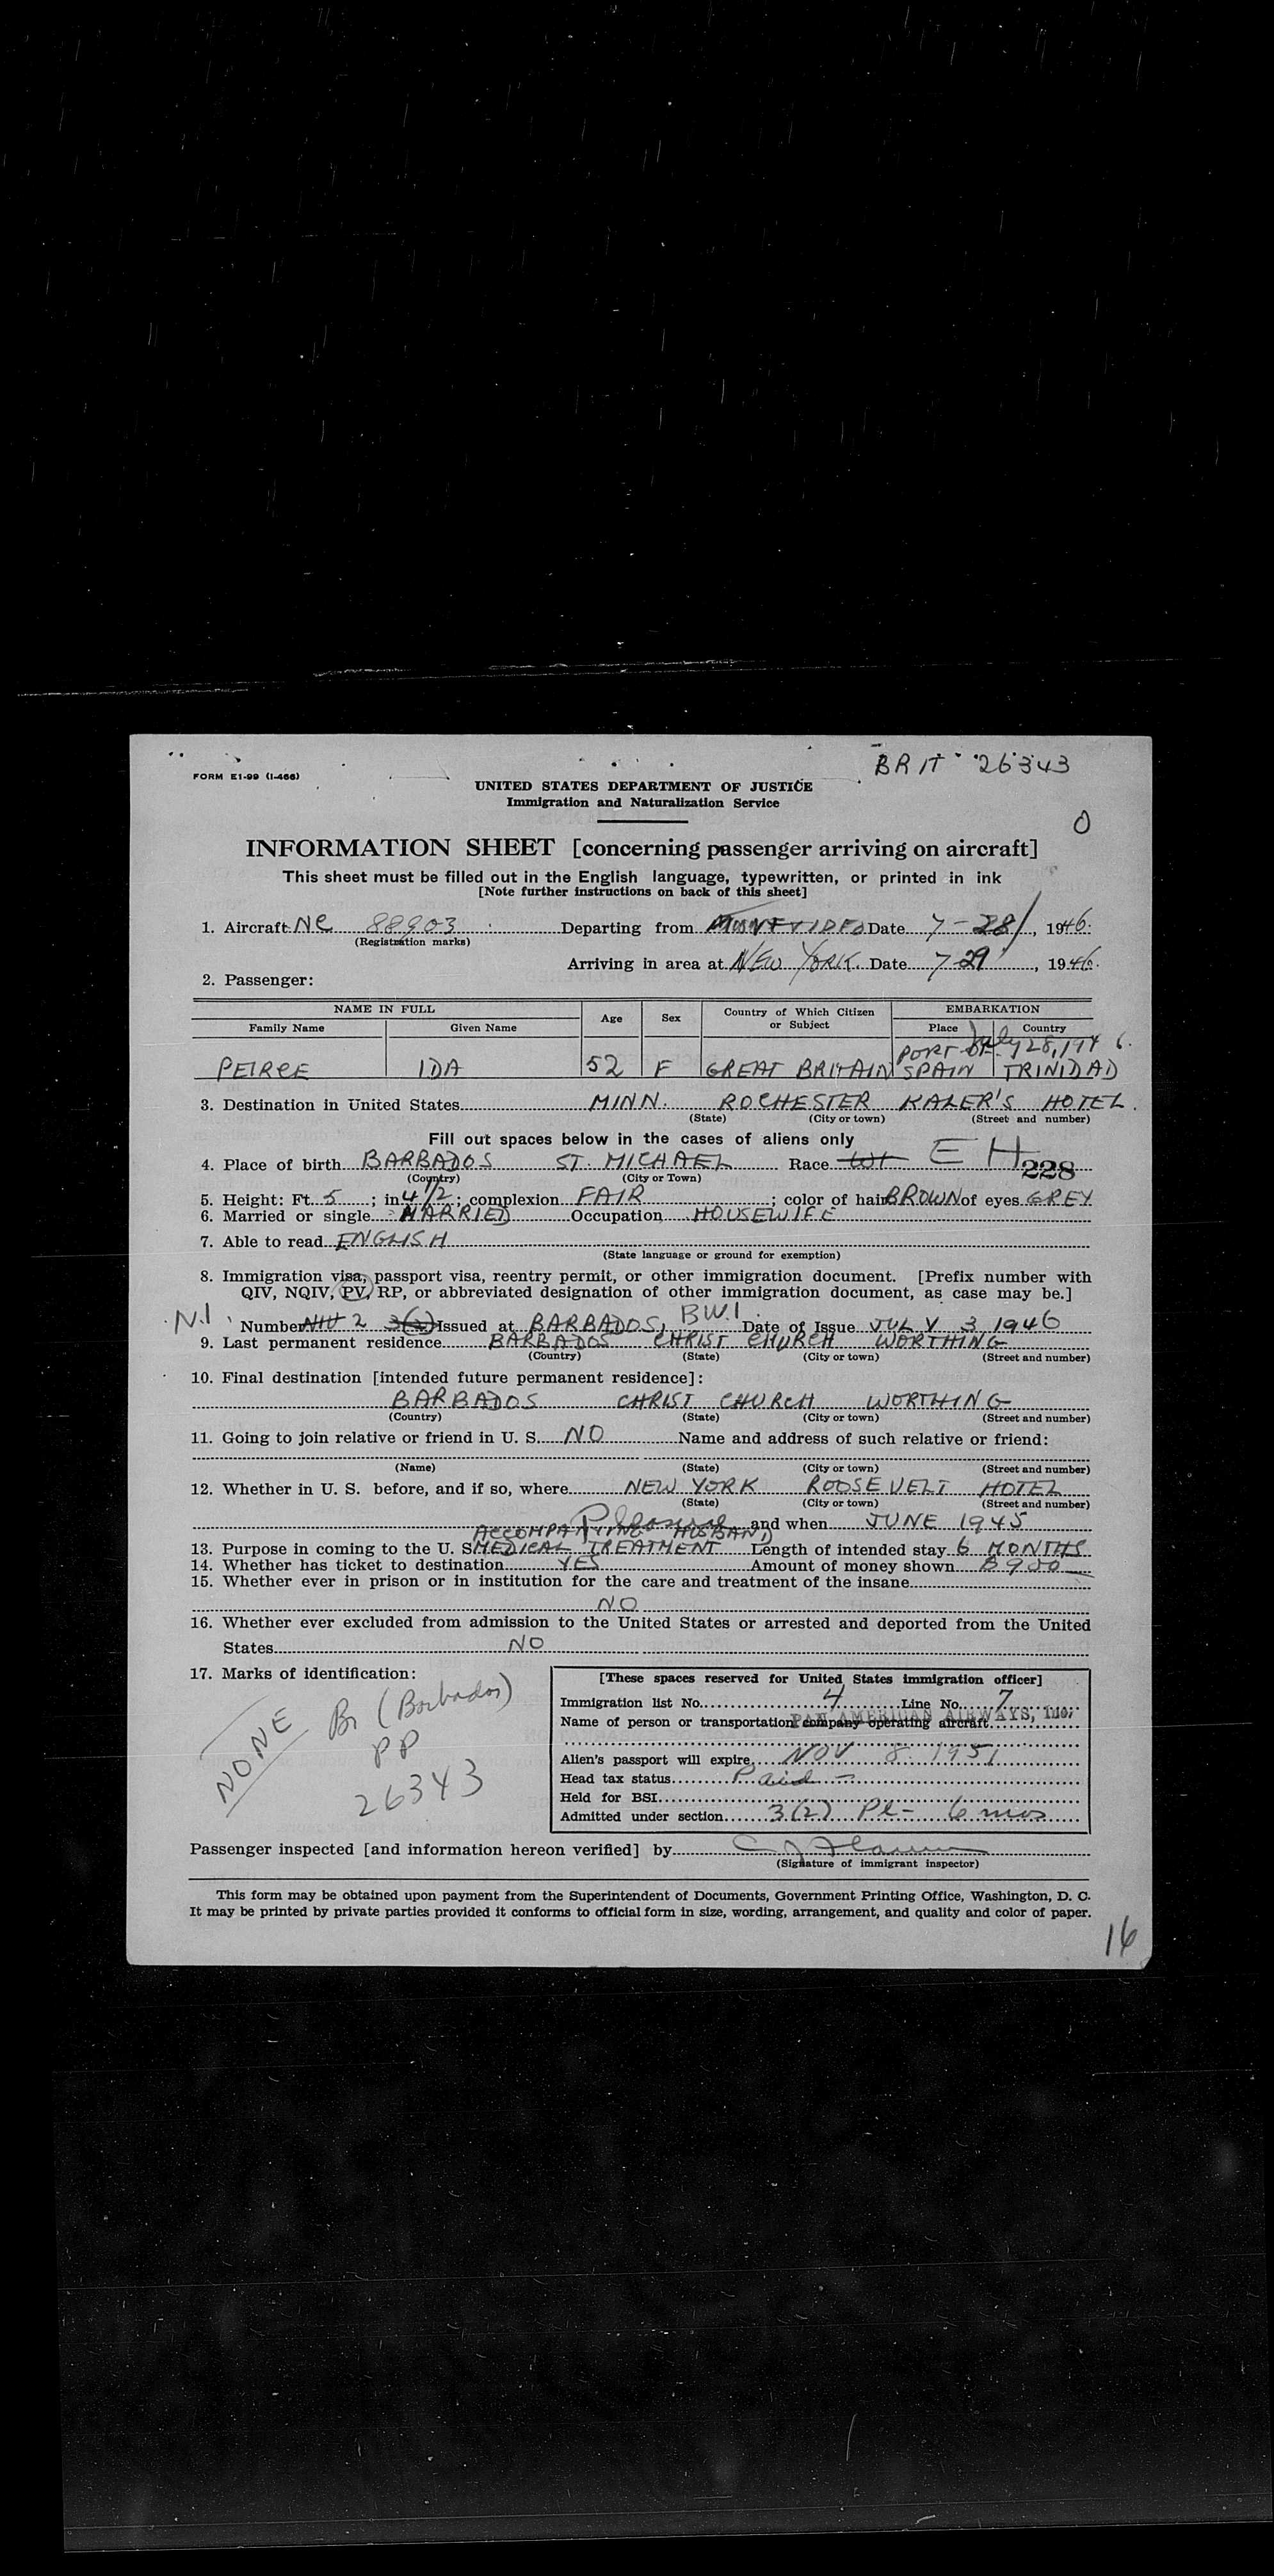 BRIT 26343
FORM E1-99 (I-466)
UNITED STATES DEPARTMENT OF JUSTICE
Immigration and Naturalization Service
O
INFORMATION SHEET [concerning passenger arriving on aircraft]
This sheet must be filled out in the English language, typewritten, or printed in ink
[Note further instructions on back of this sheet]
1. Aircraft NC 88903 Departing from MONTVIDEO Date 7-28, 1946
(Registration marks)
Arriving in area at NEW YORK Date 7-29, 1946
2. Passenger:
NAME IN FULL Age Sex Country of Which Citizen or Subject EMBARKATION
Family Name Given Name Place Country
July 28, 1946.
PEIRCE IDA 52 F GREAT BRITAIN PORT OF SPAIN TRINIDAD
3. Destination in United States MINN. ROCHESTER KALER'S HOTEL.
(State) (City or town) (Street and number)
Fill out spaces below in the cases of aliens only
4. Place of birth BARBADOS ST. MICHAEL Race EH 228
(Country) (City or Town)
5. Height: Ft. 5; in 4 1/2; complexion FAIR; color of hair BROWN of eyes GREY
6. Married or single MARRIED Occupation HOUSEWIFE
7. Able to read ENGLISH
(State language or ground for exemption)
8. Immigration visa, passport visa, reentry permit, or other immigration document. [Prefix number with
QIV, NQIV, PV, RP, or abbreviated designation of other immigration document, as case may be.]
N.I Number NIU 2 3(2) Issued at BARBADOS, BW.I. Date of Issue JULY 3 1946
9. Last permanent residence BARBADOS CHRIST CHURCH WORTHING
(Country) (State) (City or town) (Street and number)
10. Final destination [intended future permanent residence]:
BARBADOS CHRIST CHURCH WORTHING
(Country) (State) (City or town) (Street and number)
11. Going to join relative or friend in U. S. NO Name and address of such relative or friend:
(Name) (State) (City or town) (Street and number)
12. Whether in U. S. before, and if so, where NEW YORK ROOSEVELT HOTEL
(State) (City or town) (Street and number)
Pleasure and when JUNE 1945
ACCOMPANYING HUSBAND
13. Purpose in coming to the U. S. MEDICAL TREATMENT Length of intended stay 6 MONTHS
14. Whether has ticket to destination YES Amount of money shown $900
15. Whether ever in prison or in institution for the care and treatment of the insane
NO
16. Whether ever excluded from admission to the United States or arrested and deported from the United
States NO
17. Marks of identification:
NONE
Br (Barbados)
PP
26343
[These spaces reserved for United States immigration officer]
Immigration list No. 4 Line No. 7
PAN AMERICAN AIRWAYS, Inc.
Name of person or transportation company operating aircraft
Alien's passport will expire NOV 8 1951
Head tax status Paid -
Held for BSI
Admitted under section 3(2) Pl- 6 mos
Passenger inspected [and information hereon verified] by
(Signature of immigrant inspector)
This form may be obtained upon payment from the Superintendent of Documents, Government Printing Office, Washington, D. C.
It may be printed by private parties provided it conforms to official form in size, wording, arrangement, and quality and color of paper.
16